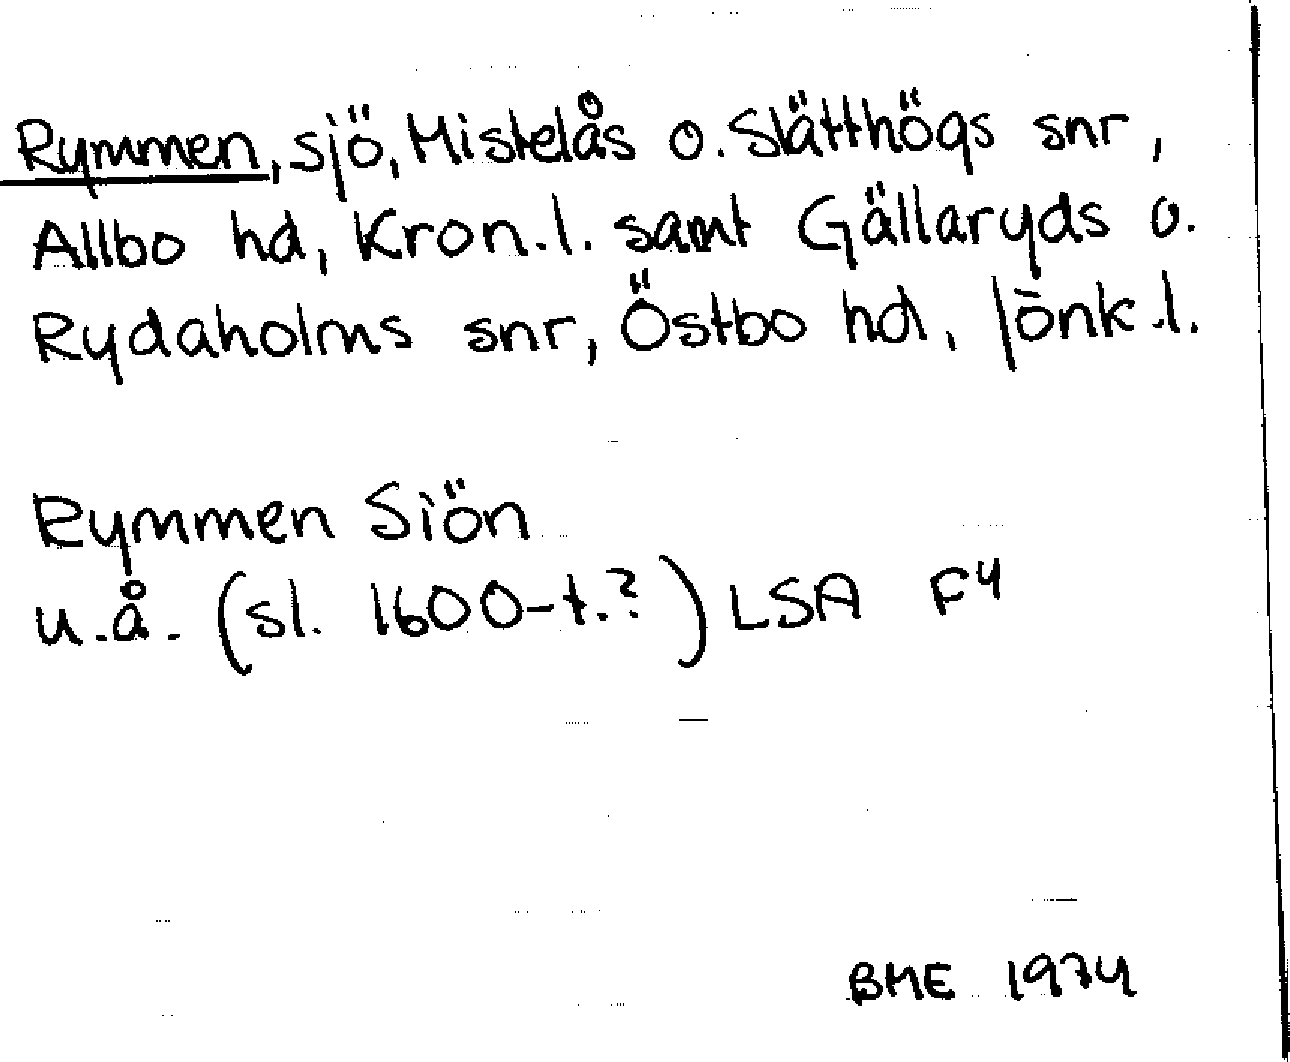 Rymmen, sjö, Mistelås o. Slätthögs snr,
Allbo hd, Kron.l. samt Gällaryds o.
Rydaholms snr, Östbo hd, Jönk.l.
Rymmen Siön
u.å. (sl. 1600-t.?) LSA F4
BME 1974